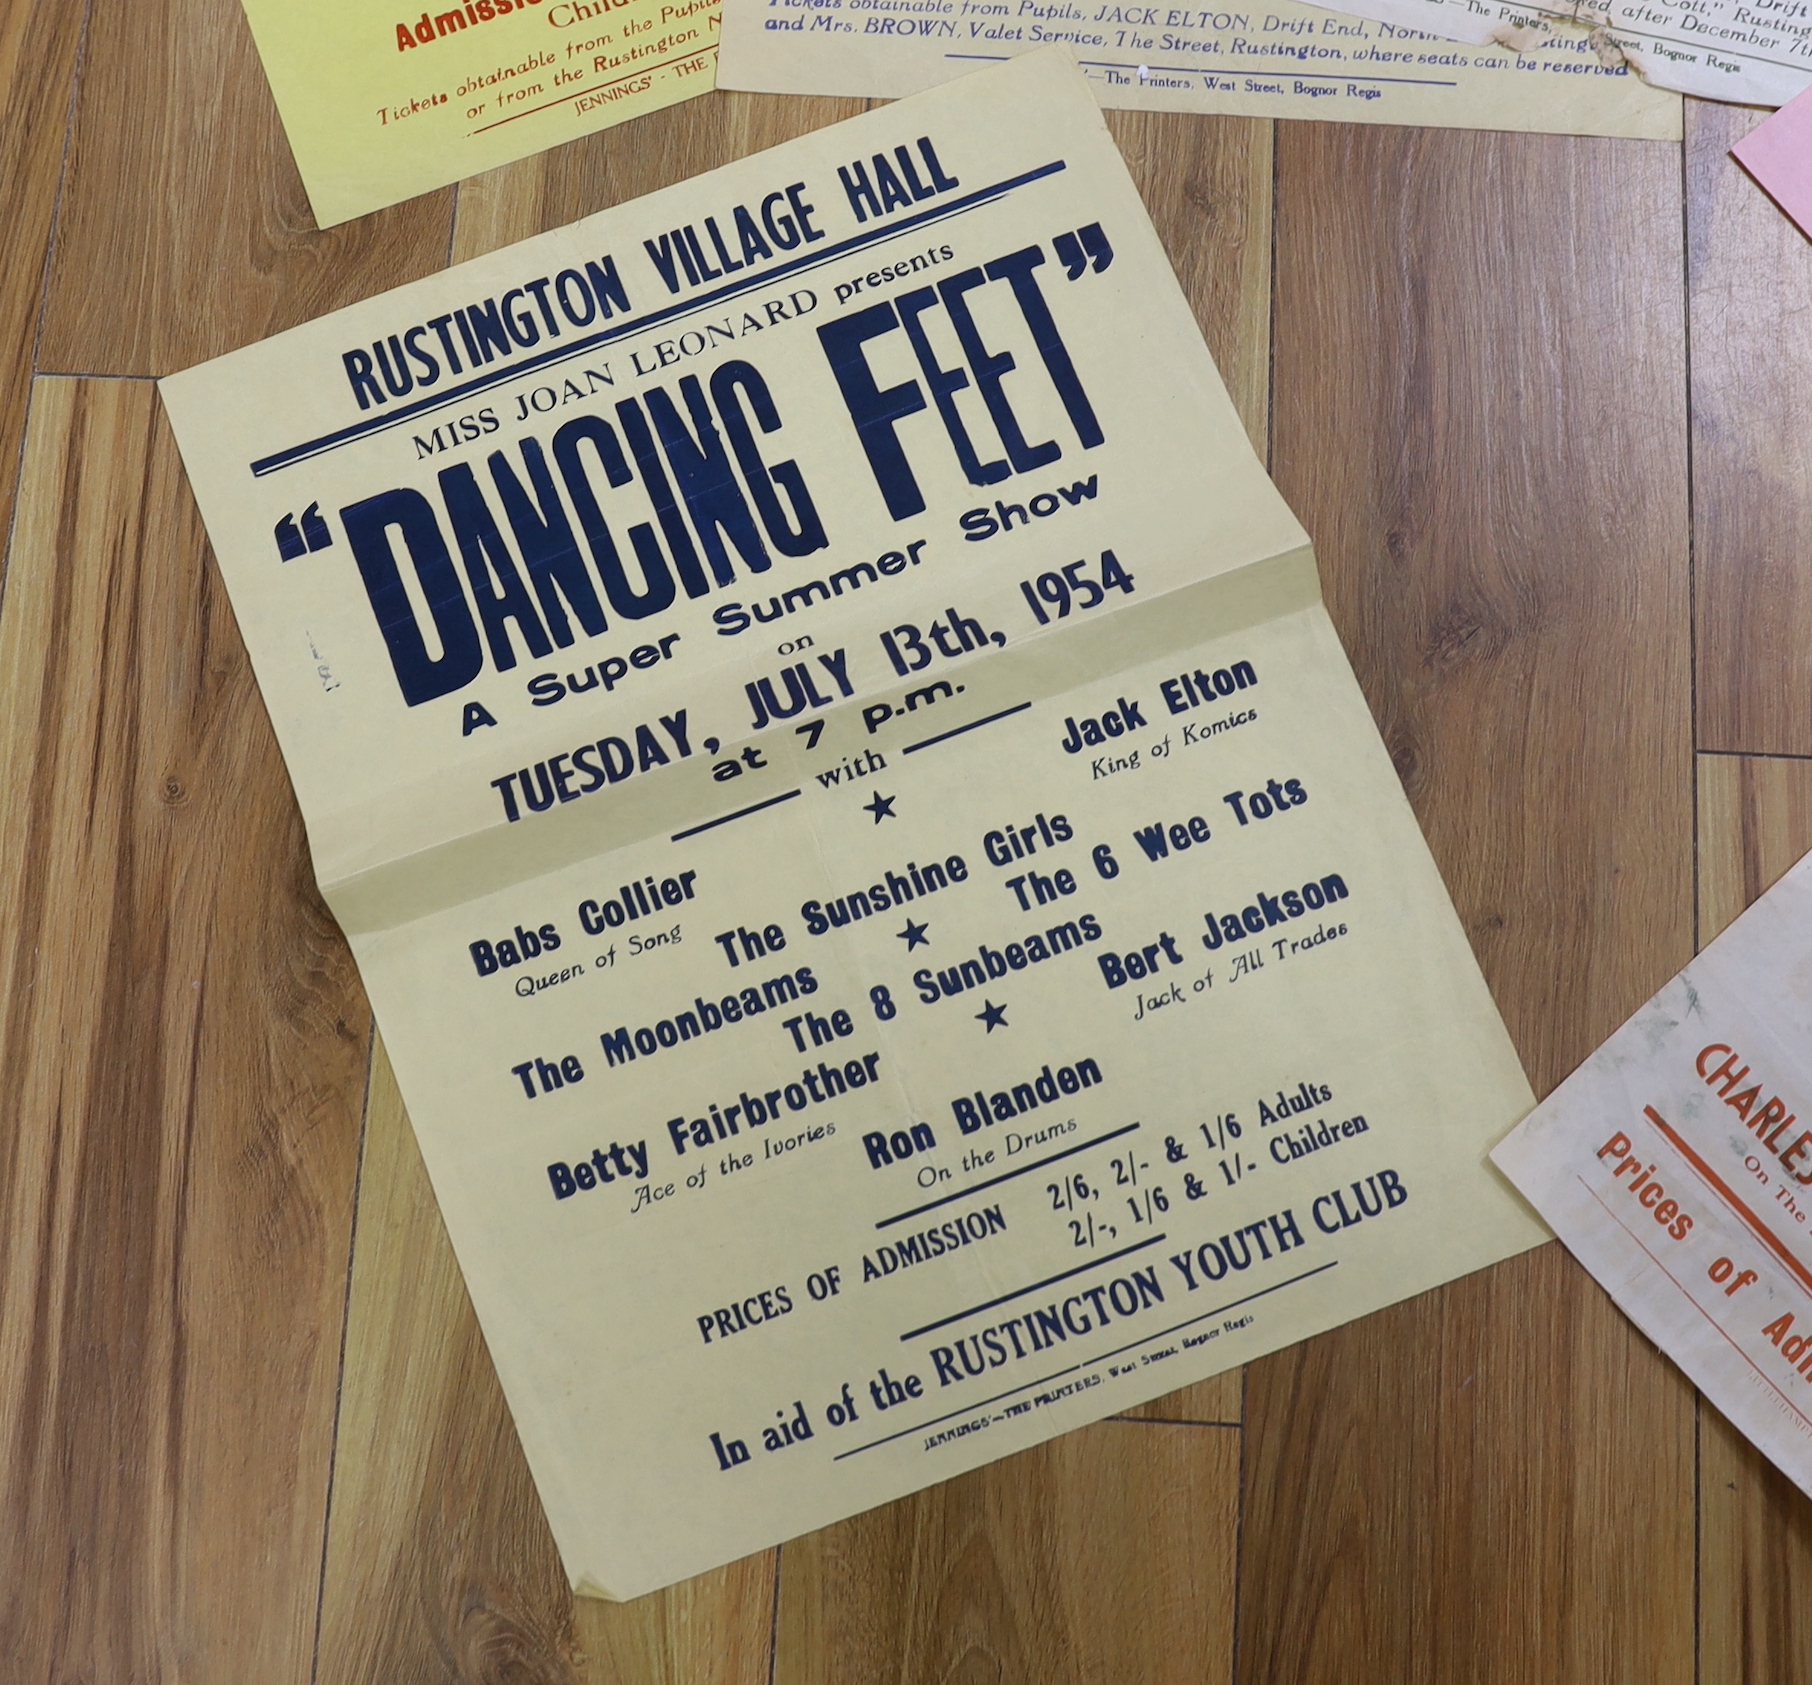 Admission
Tickets obtainable from the Pupils
or from the Rustington N
JENNINGS' - THE
Tickets obtainable from Pupils, JACK ELTON, Drift End, North
and Mrs. BROWN, Valet Service, The Street, Rustington, where seats can be reserved
The Printers, West Street, Bognor Regis
Drift
Colt," Rusting
after December 7th
The Printers, Street, Bognor Regis
RUSTINGTON VILLAGE HALL
MISS JOAN LEONARD presents
“DANCING FEET”
A Super Summer Show
on
TUESDAY, JULY 13th, 1954
at 7 p.m.
with
★
Babs Collier
Queen of Song
Jack Elton
King of Komics
The Sunshine Girls
★
The Moonbeams
The 6 Wee Tots
The 8 Sunbeams
★
Betty Fairbrother
Ace of the Ivories
Bert Jackson
Jack of All Trades
Ron Blanden
On the Drums
PRICES OF ADMISSION 2/6, 2/- & 1/6 Adults
2/-, 1/6 & 1/- Children
In aid of the RUSTINGTON YOUTH CLUB
JENNINGS'—THE PRINTERS, West Street, Bognor Regis
CHARLES
On The
Prices of Adm